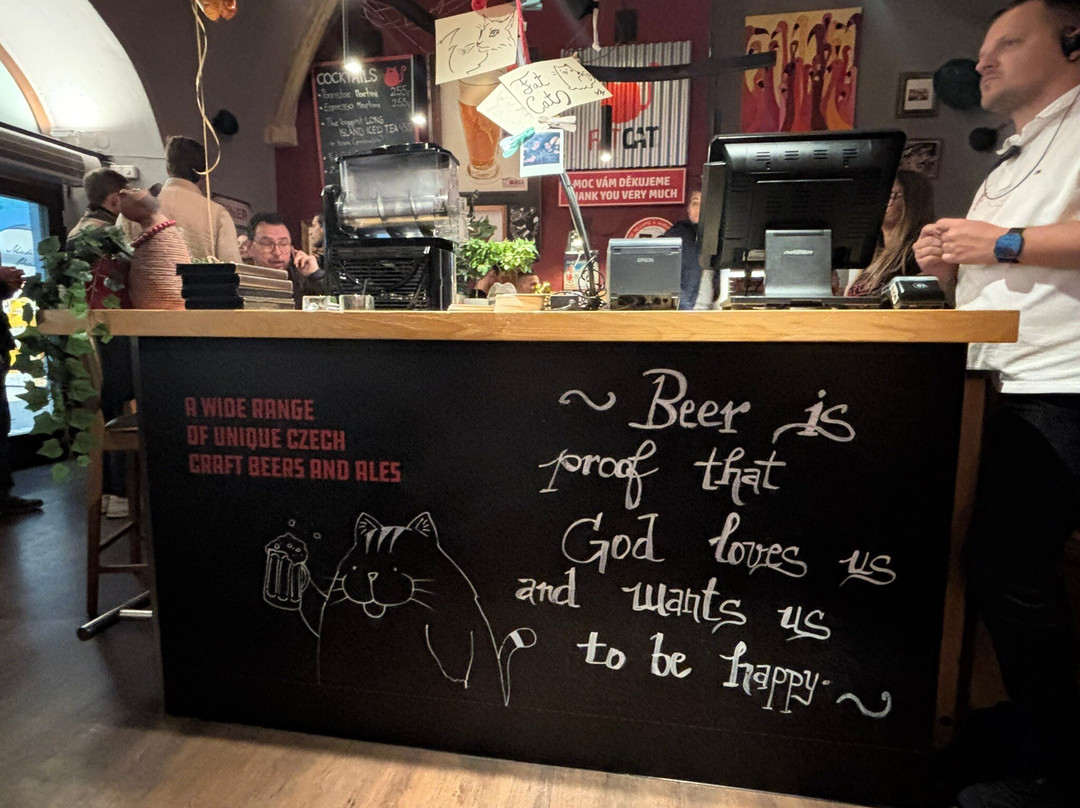 COCKTAILS
- Pornstar Martini 255,-
- Espresso Martini 255,-
- The biggest LONG
ISLAND ICED TEA
Fat
Cats
CAT
MOC VÁM DĚKUJEME
THANK YOU VERY MUCH
EPSON
A WIDE RANGE
OF UNIQUE CZECH
CRAFT BEERS AND ALES
~ Beer is
proof that
God loves us
and wants us
to be happy. ~